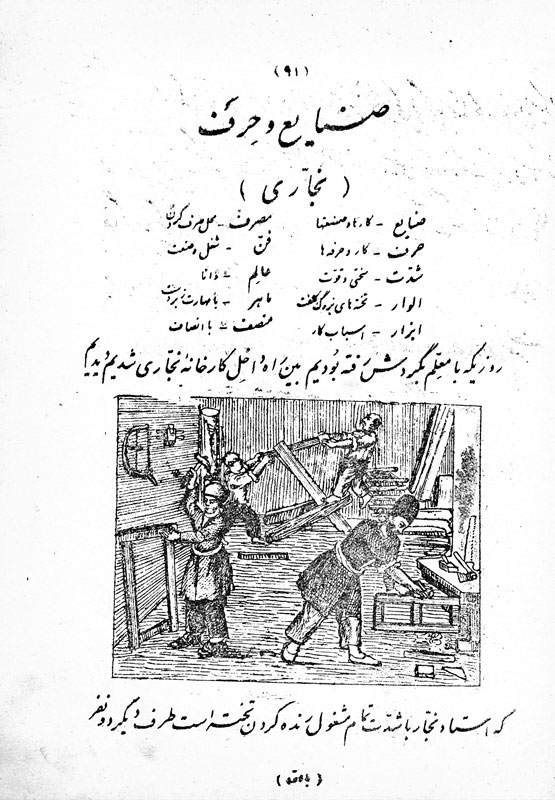 (۹۱)
صنایع و حِرَف
(نجّاری)
صنایع - کارها و صنعتها    مصرف - محل صرف کردن
حرف - کار و حرفه ها    فنّ - شغل و صنعت
شدّت - سختی و قوّت    عالِم - دانا
الوار - تخته های بزرگ کلفت    ماهر - با مهارت زبردست
ابزار - اسباب کار    منصف - با انصاف
روزیکه با معلّم بگردش رفته بودیم بین راه داخل کارخانه نجّاری شدیم دیدیم
که استاد نجّار با شدّت تمام مشغول رنده کردن تخته است طرف دیگر دو نفر